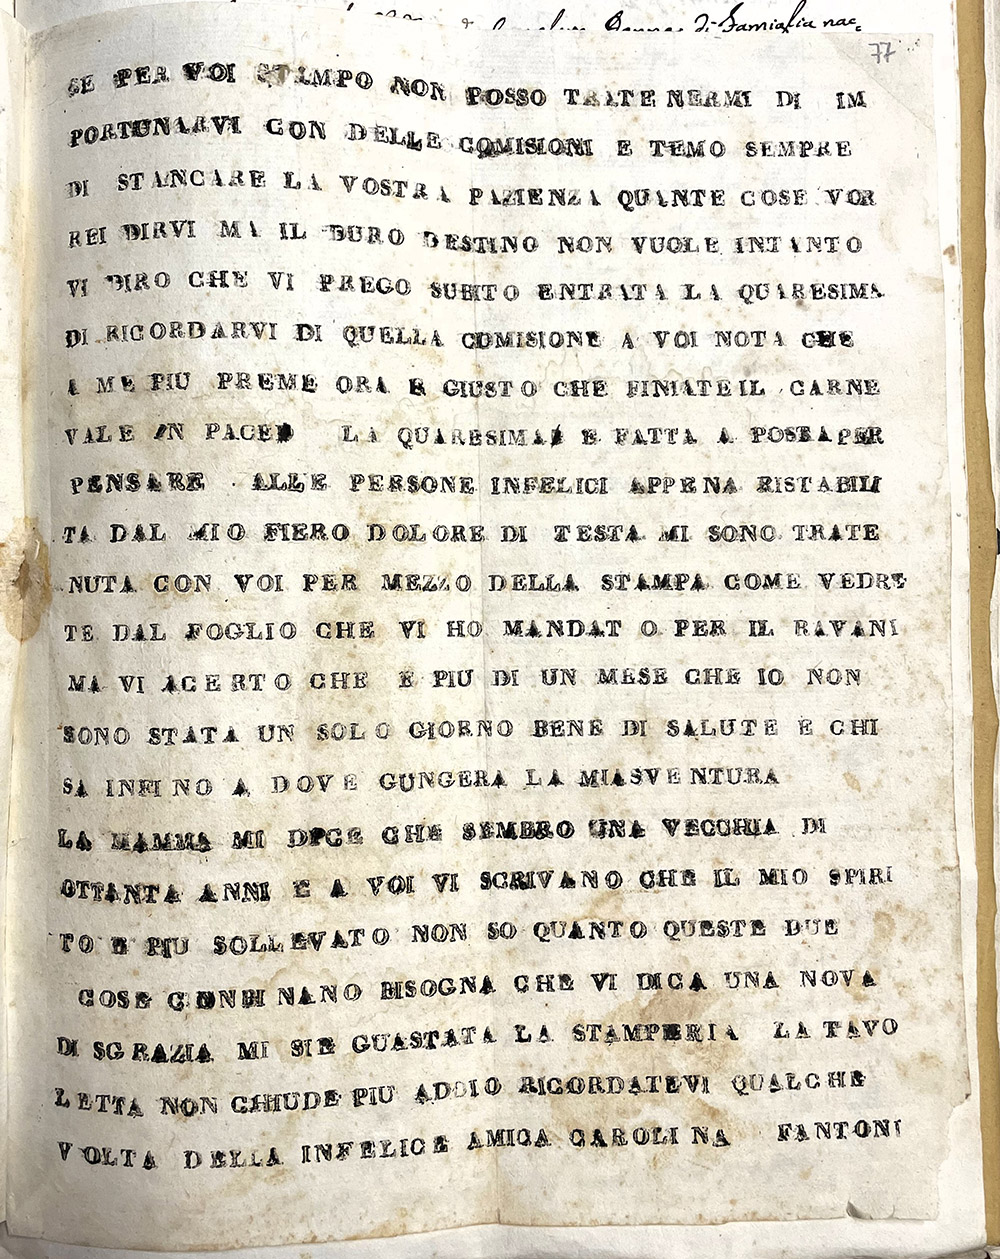 di Famiglia nac
77
SE PER VOI STAMPO NON POSSO TRATE NERMI DI IM
PORTUNARVI CON DELLE COMISIONI E TEMO SEMPRE
DI STANCARE LA VOSTRA PAZIENZA QUANTE COSE VOR
REI DIRVI MA IL DURO DESTINO NON VUOLE INTANTO
VI DIRO CHE VI PREGO SUBITO ENTRATA LA QUARESIMA
DI RICORDARVI DI QUELLA COMISIONE A VOI NOTA CHE
A ME PIU PREME ORA E GIUSTO CHE FINIATE IL CARNE
VALE IN PACE LA QUARESIMA E FATTA A POSTA PER
PENSARE ALLE PERSONE INFELICI APPENA RISTABILI
TA DAL MIO FIERO DOLORE DI TESTA MI SONO TRATE
NUTA CON VOI PER MEZZO DELLA STAMPA COME VEDRE
TE DAL FOGLIO CHE VI HO MANDAT O PER IL RAVANI
MA VI ACERTO CHE E PIU DI UN MESE CHE IO NON
SONO STATA UN SOLO GIORNO BENE DI SALUTE E CHI
SA INFINO A DOVE GUNGERA LA MIA SVENTURA
LA MAMMA MI DICE CHE SEMBRO UNA VECCHIA DI
OTTANTA ANNI E A VOI VI SCRIVANO CHE IL MIO SPIRI
TO E PIU SOLLEVATO NON SO QUANTO QUESTE DUE
COSE CONBINANO BISOGNA CHE VI DICA UNA NOVA
DI SGRAZIA MI SIE GUASTATA LA STAMPERIA LA TAVO
LETTA NON CHIUDE PIU ADDIO RICORDATEVI QUALCHE
VOLTA DELLA INFELICE AMICA CAROLINA FANTONI